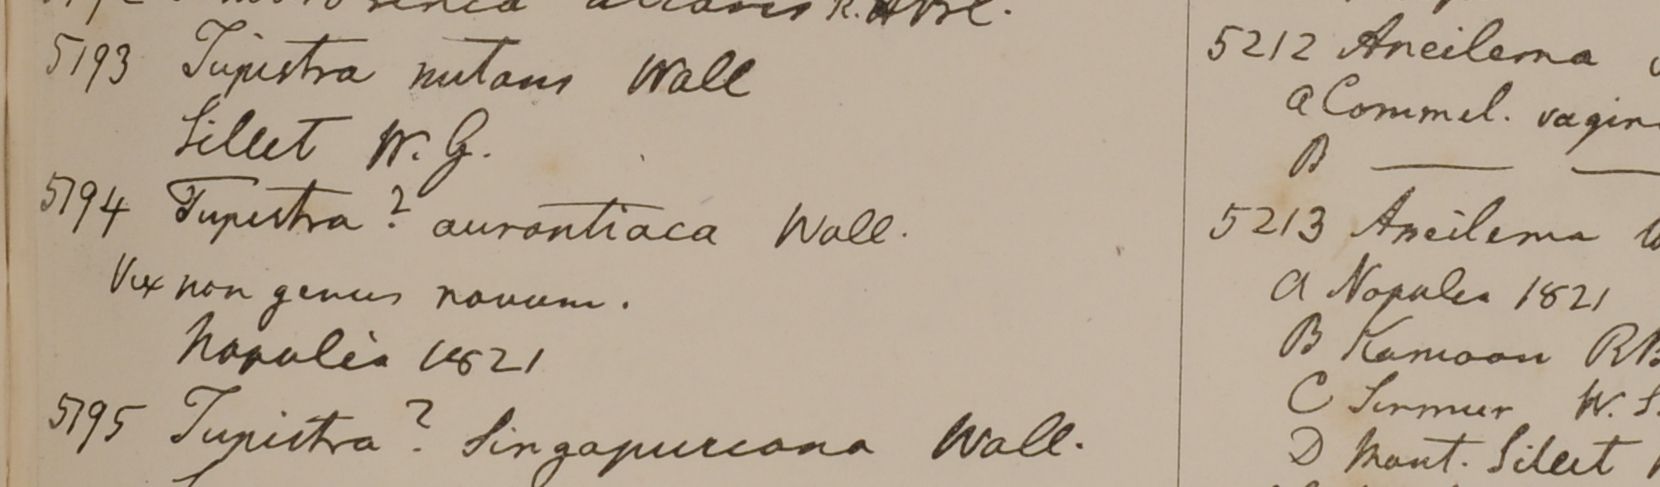 5193 Tupistra nutans Wall
Sillet W. G.
5194 Tupistra? aurantiaca Wall.
Vix non genus novum.
Napalia 1821
5195 Tupistra? Singapureana Wall.
5212 Aneilema
a Commel. vagin
B
5213 Aneilema
a Napalia 1821
B Kamaon RB
C Sirmur W. S.
D Mont. Sillet